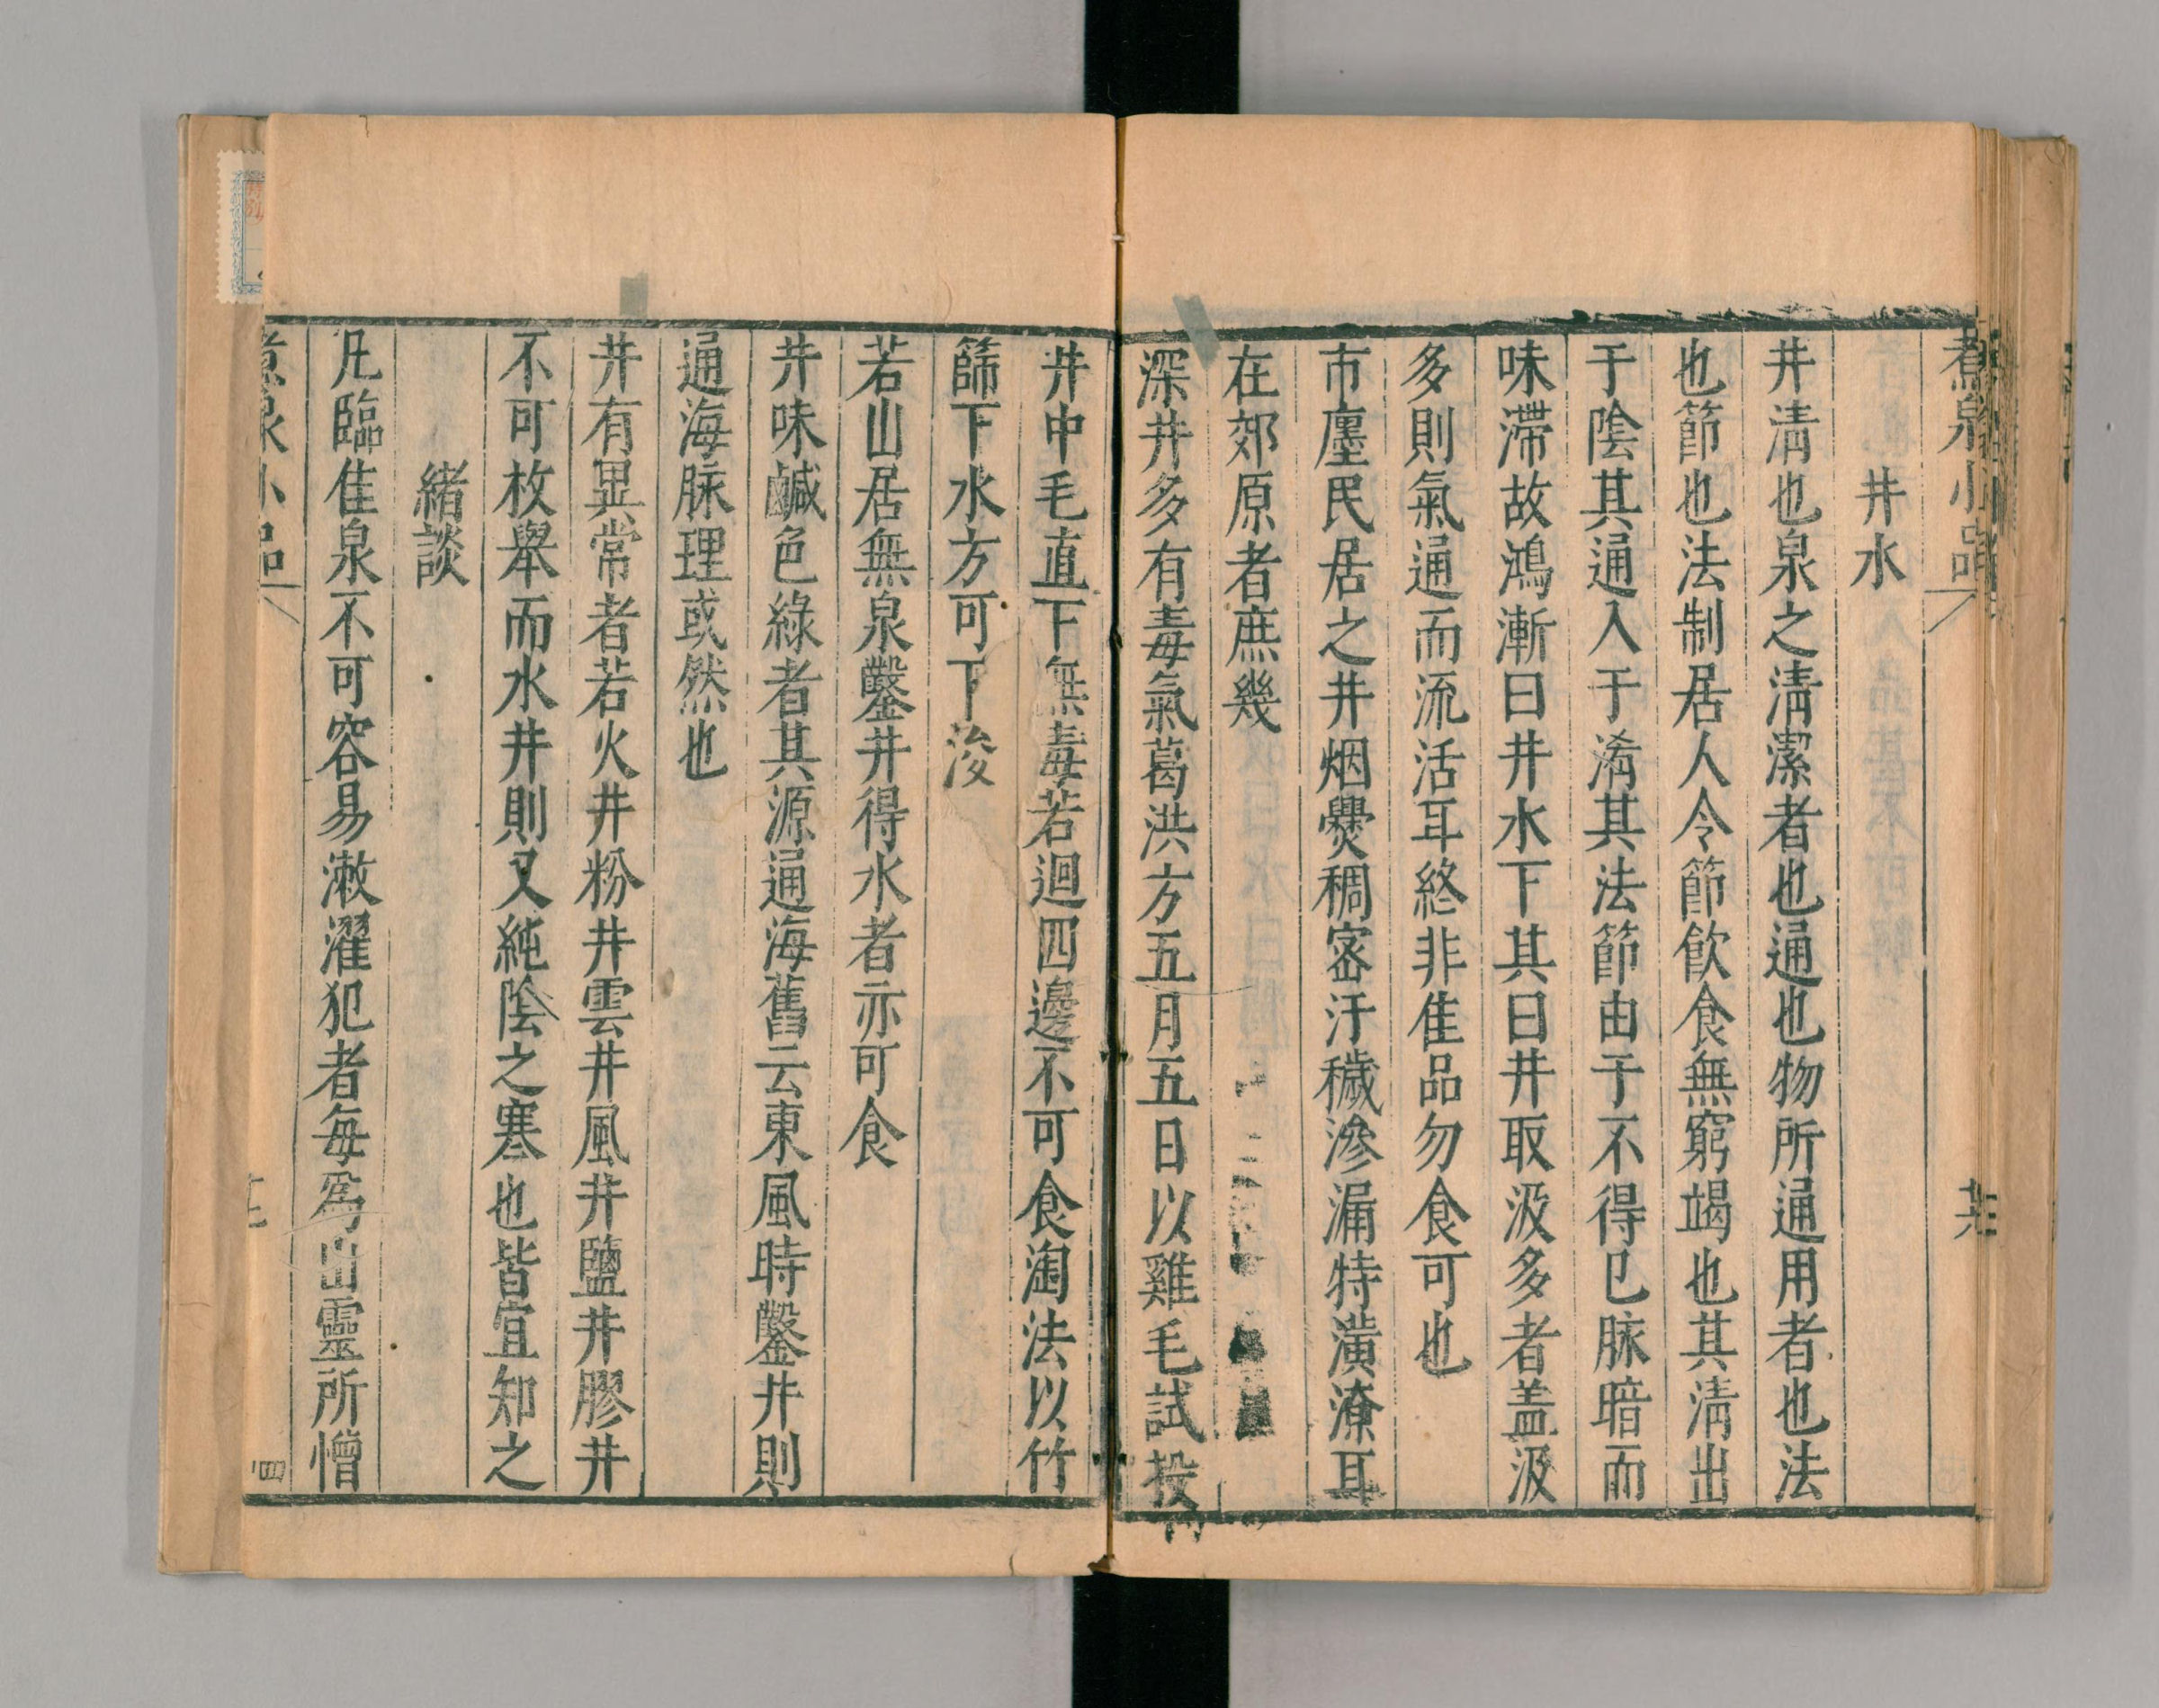 煮泉小品
井水
井淸也泉之淸潔者也通也物所通用者也法
也節也法制居人令節飮食無窮竭也其淸出
于陰其通入于淆其法節由于不得已脉暗而
味滯故鴻漸曰井水下其曰井取汲多者盖汲
多則氣通而流活耳終非佳品勿食可也
市廛民居之井烟爨稠密汙穢滲漏特潢潦耳
在郊原者庶幾
深井多有毒氣葛洪方五月五日以雞毛試投
井中毛直下無毒若迴四邊不可食淘法以竹
篩下水方可下浚
若山居無泉鑿井得水者亦可食
井味鹹色綠者其源通海舊云東風時鑿井則
通海脉理或然也
井有異常者若火井粉井雲井風井鹽井膠井
不可枚舉而水井則又純陰之寒也皆宜知之
緒談
凡臨佳泉不可容易漱濯犯者每爲山靈所憎
煮泉小品